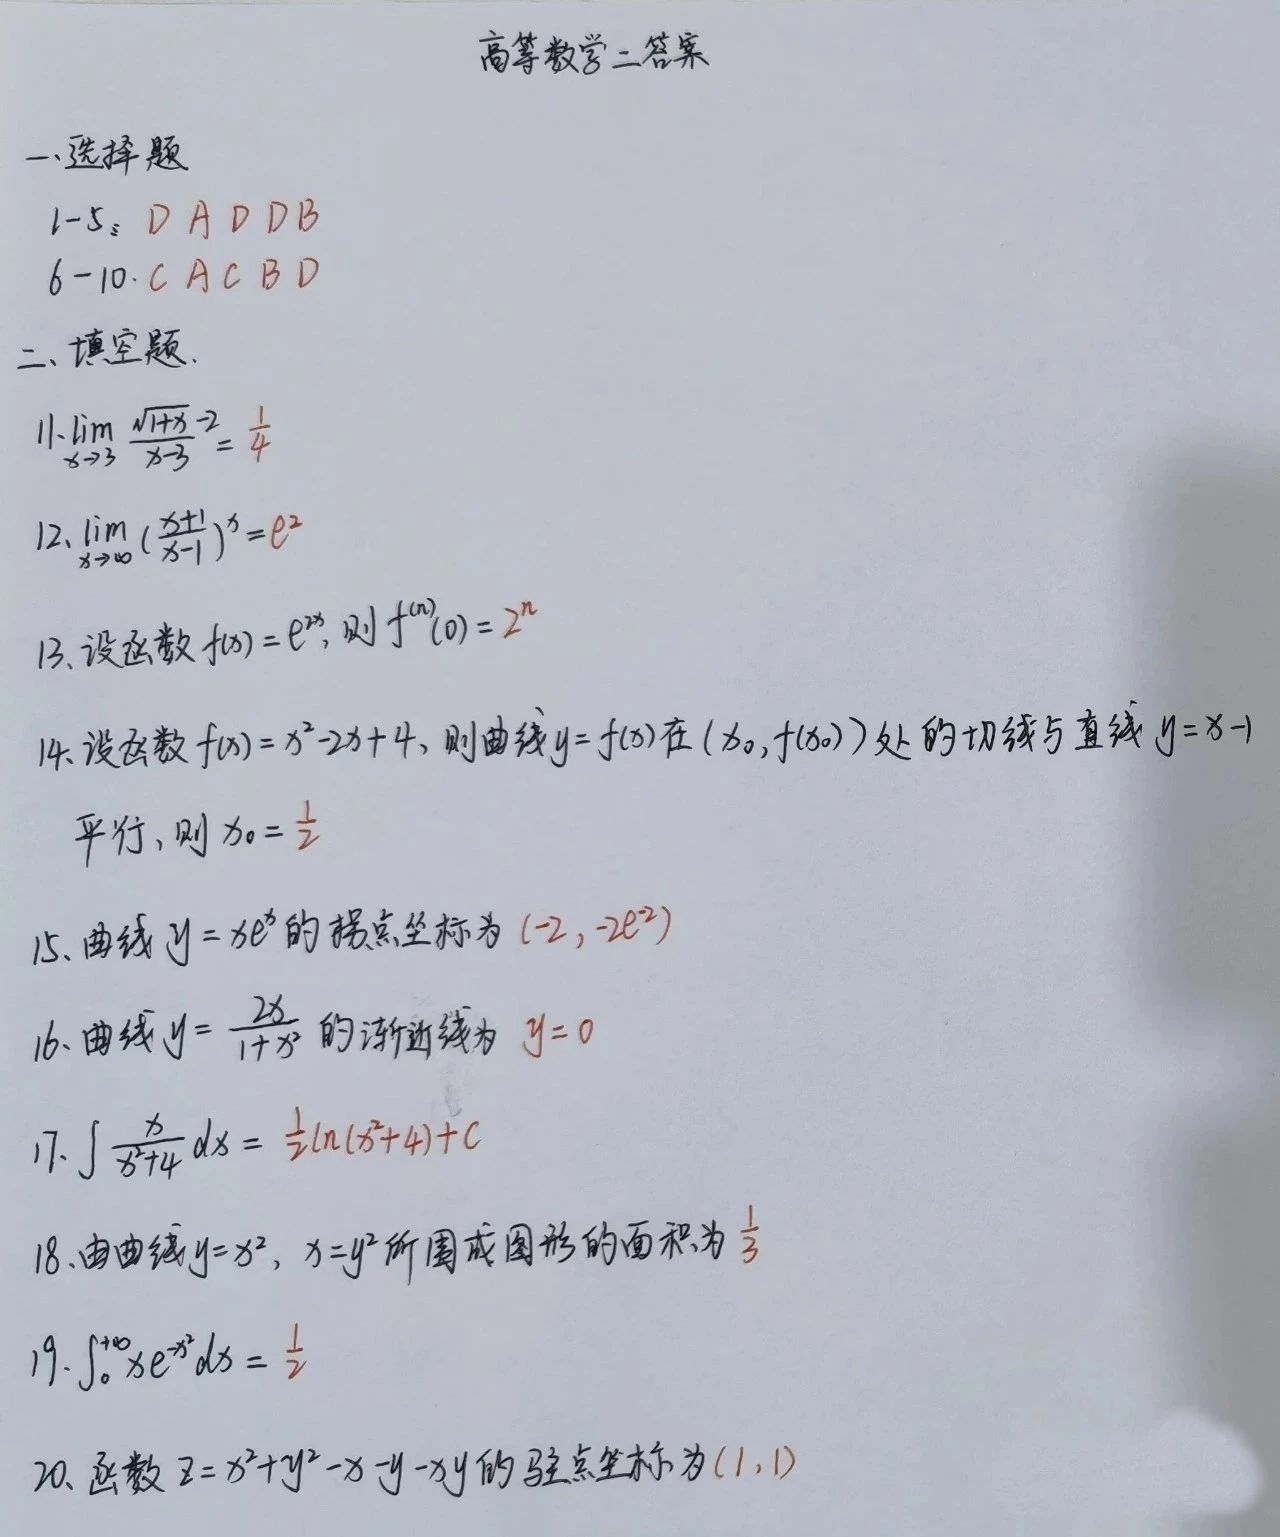 高等数学二答案
一、选择题
1-5: D A D D B
6-10. C A C B D
二、填空题.
11. lim_{x→3} (√(1+x) -2)/(x-3) = 1/4
12、lim_{x→∞} ((x+1)/(x-1))^x = e^2
13、设函数 f(x) = e^{2x}, 则 f^{(n)}(0) = 2^n
14、设函数 f(x) = x^2-2x+4、则曲线 y=f(x) 在 (x_0, f(x_0)) 处的切线与直线 y=x-1
平行、则 x_0 = 1/2
15、曲线 y = xe^x 的拐点坐标为 (-2, -2e^{-2})
16、曲线 y = 2x/(1+x^2) 的渐近线为 y=0
17. ∫ x/(x^2+4) dx = 1/2 ln(x^2+4)+C
18、由曲线 y=x^2, x=y^2 所围成图形的面积为 1/3
19. ∫_0^{+∞} xe^{-x^2} dx = 1/2
20、函数 z = x^2+y^2-x-y-xy 的驻点坐标为 (1,1)